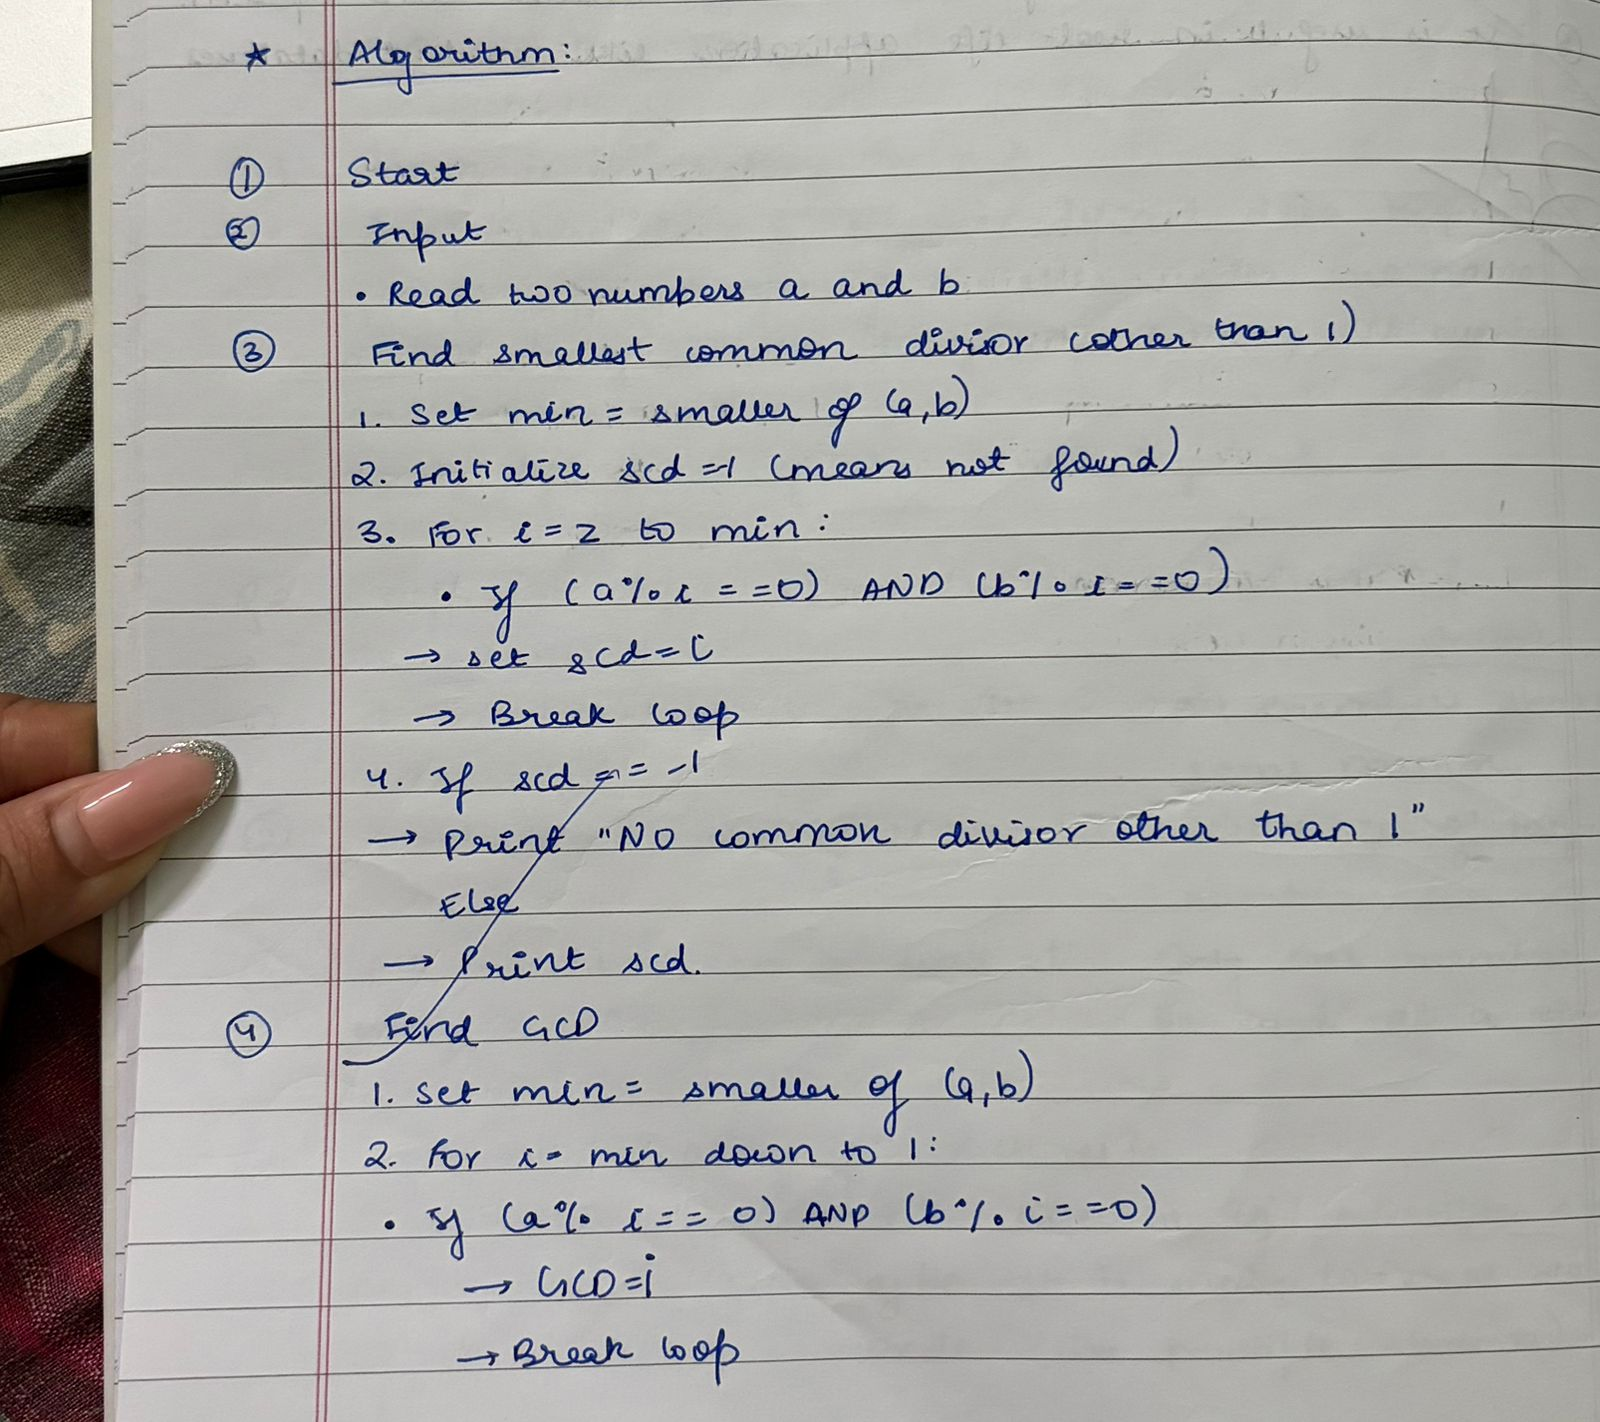 * Algorithm:
① Start
② Input
• Read two numbers a and b
③ Find smallest common divisor (other than 1)
1. Set min = smaller of (a,b)
2. Initialize scd =-1 (means not found)
3. For i = 2 to min :
• If (a % i = = 0) AND (b % i = = 0)
→ set scd = i
→ Break loop
4. If scd = = -1
→ Print "NO common divisor other than 1"
Else
→ Print scd.
④ Find GCD
1. Set min = smaller of (a,b)
2. For i = min down to 1 :
• If (a % i = = 0) AND (b % i = = 0)
→ GCD = i
→ Break loop